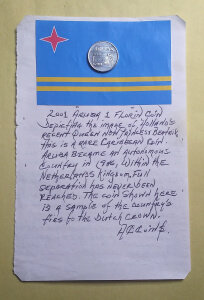 2001 ARUBA 1 FLORIN COIN
DEPICTING THE IMAGE OF HOLLAND'S
RECENT QUEEN NOW PRINCESS BEATRIX,
THIS IS A RARE CARIBBEAN COIN.
ARUBA BECAME AN AUTONOMOUS
COUNTRY IN 1986, WITHIN THE
NETHERLANDS KINGDOM, FULL
SEPARATION HAS NEVER BEEN
REACHED. THE COIN SHOWN HERE
IS A SAMPLE OF THE COUNTRY'S
TIES TO THE DUTCH CROWN.